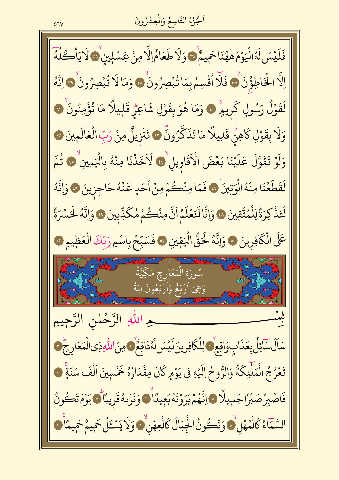 اَلْجُزْءُ التَّاسِعُ وَالْعِشْرُونَ
٥٦٧
فَلَيْسَ لَهُ الْيَوْمَ هٰهُنَا حَمِيمٌ ۝ وَلَا طَعَامٌ اِلَّا مِنْ غِسْلِينٍ ۝ لَا يَأْكُلُهُٓ
اِلَّا الْخَاطِؤُ۫نَ ۝ فَلَٓا اُقْسِمُ بِمَا تُبْصِرُونَ ۝ وَمَا لَا تُبْصِرُونَ ۝ اِنَّهُ
لَقَوْلُ رَسُولٍ كَرِيمٍ ۝ وَمَا هُوَ بِقَوْلِ شَاعِرٍ قَلِيلًا مَا تُؤْمِنُونَ ۝
وَلَا بِقَوْلِ كَاهِنٍ قَلِيلًا مَا تَذَكَّرُونَ ۝ تَنْزِيلٌ مِنْ رَبِّ الْعَالَمِينَ ۝
وَلَوْ تَقَوَّلَ عَلَيْنَا بَعْضَ الْاَقَاوِيلِ ۝ لَاَخَذْنَا مِنْهُ بِالْيَمِينِ ۝ ثُمَّ
لَقَطَعْنَا مِنْهُ الْوَتِينَ ۝ فَمَا مِنْكُمْ مِنْ اَحَدٍ عَنْهُ حَاجِزِينَ ۝ وَاِنَّهُ
لَتَذْكِرَةٌ لِلْمُتَّقِينَ ۝ وَاِنَّا لَنَعْلَمُ اَنَّ مِنْكُمْ مُكَذِّبِينَ ۝ وَاِنَّهُ لَحَسْرَةٌ
عَلَى الْكَافِرِينَ ۝ وَاِنَّهُ لَحَقُّ الْيَقِينِ ۝ فَسَبِّحْ بِاسْمِ رَبِّكَ الْعَظِيمِ ۝
سُورَةُ الْمَعَارِجِ مَكِّيَّةٌ
وَهِيَ اَرْبَعٌ وَاَرْبَعُونَ اٰيَةً
بِسْمِ اللّٰهِ الرَّحْمٰنِ الرَّحِيمِ
سَاَلَ سَٓائِلٌ بِعَذَابٍ وَاقِعٍ ۝ لِلْكَافِرِينَ لَيْسَ لَهُ دَافِعٌ ۝ مِنَ اللّٰهِ ذِي الْمَعَارِجِ ۝
تَعْرُجُ الْمَلٰٓئِكَةُ وَالرُّوحُ اِلَيْهِ فِي يَوْمٍ كَانَ مِقْدَارُهُ خَمْسِينَ اَلْفَ سَنَةٍ ۝
فَاصْبِرْ صَبْرًا جَمِيلًا ۝ اِنَّهُمْ يَرَوْنَهُ بَعِيدًا ۝ وَنَرٰيهُ قَرِيبًا ۝ يَوْمَ تَكُونُ
السَّمَٓاءُ كَالْمُهْلِ ۝ وَتَكُونُ الْجِبَالُ كَالْعِهْنِ ۝ وَلَا يَسْـَٔلُ حَمِيمٌ حَمِيمًا ۝